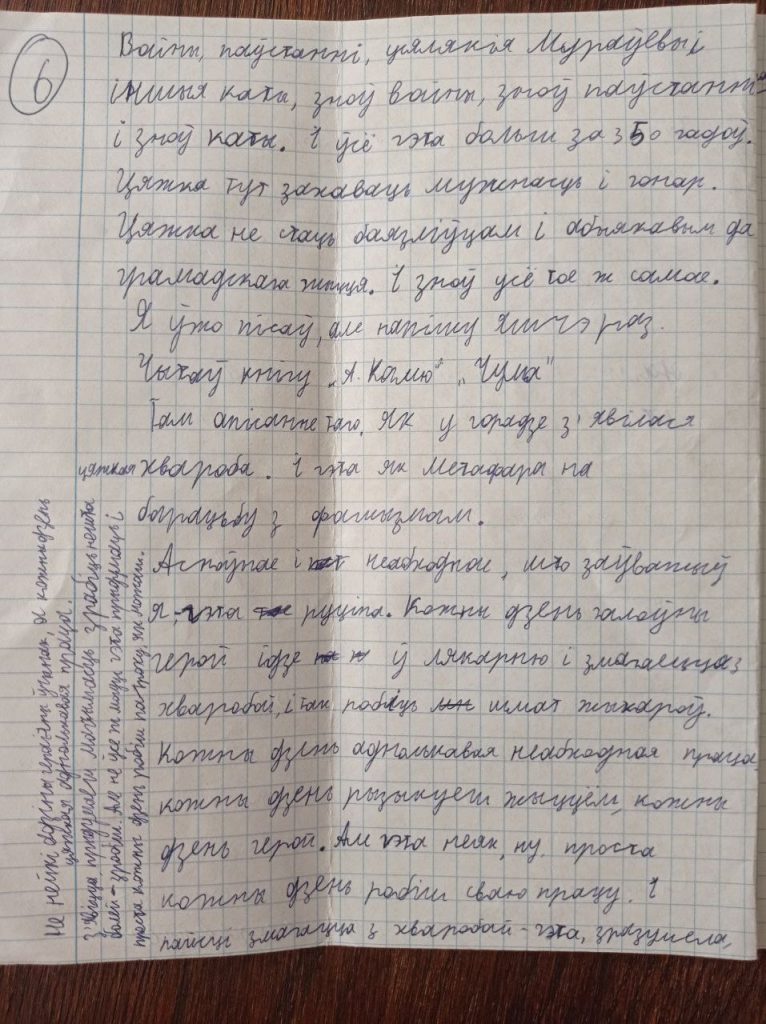 6
Войны, паўстанні, цялякія Мураўёвы і
іншыя каты, зноў войны, зноў паўстанні
і зноў каты. І ўсё гэта больш за 350 гадоў.
Цяжка тут захаваць мужнасць і гонар.
Цяжка не стаць баязліўцам і абыякавым да
грамадскага жыцця. І зноў усё тое ж самае.
Я ўжо пісаў, але напішу яшчэ раз.
Чытаў кнігу „А. Камю" „Чума"
Там апісанне таго, як у горадзе з'явілася
цяжкая хвароба. І гэта як метафара на
барацьбу з фашызмам.
Асноўнае і неабходнае, што заўважыў
я, - гэта руціна. Кожны дзень галоўны
герой ідзе ў лякарню і змагаецца з
хваробай, і так робіць шмат жыхароў.
Кожны дзень аднолькавая неабходная праца,
кожны дзень рызыкуеш жыццём, кожны
дзень герой. Але гэта неяк, ну, проста
кожны дзень робіш сваю працу. І
пайсці змагацца з хваробай - гэта, зразумела,
Не нейкі адзіны гераічны ўчынак, а кожны дзень
цяжкая аднолькавая праца.
з'явіцца магчымасць зрабіць нешта
болей - зрабі. Але не ўсе ж людзі гэта і
проста кожны дзень робіш працу, як можаш.